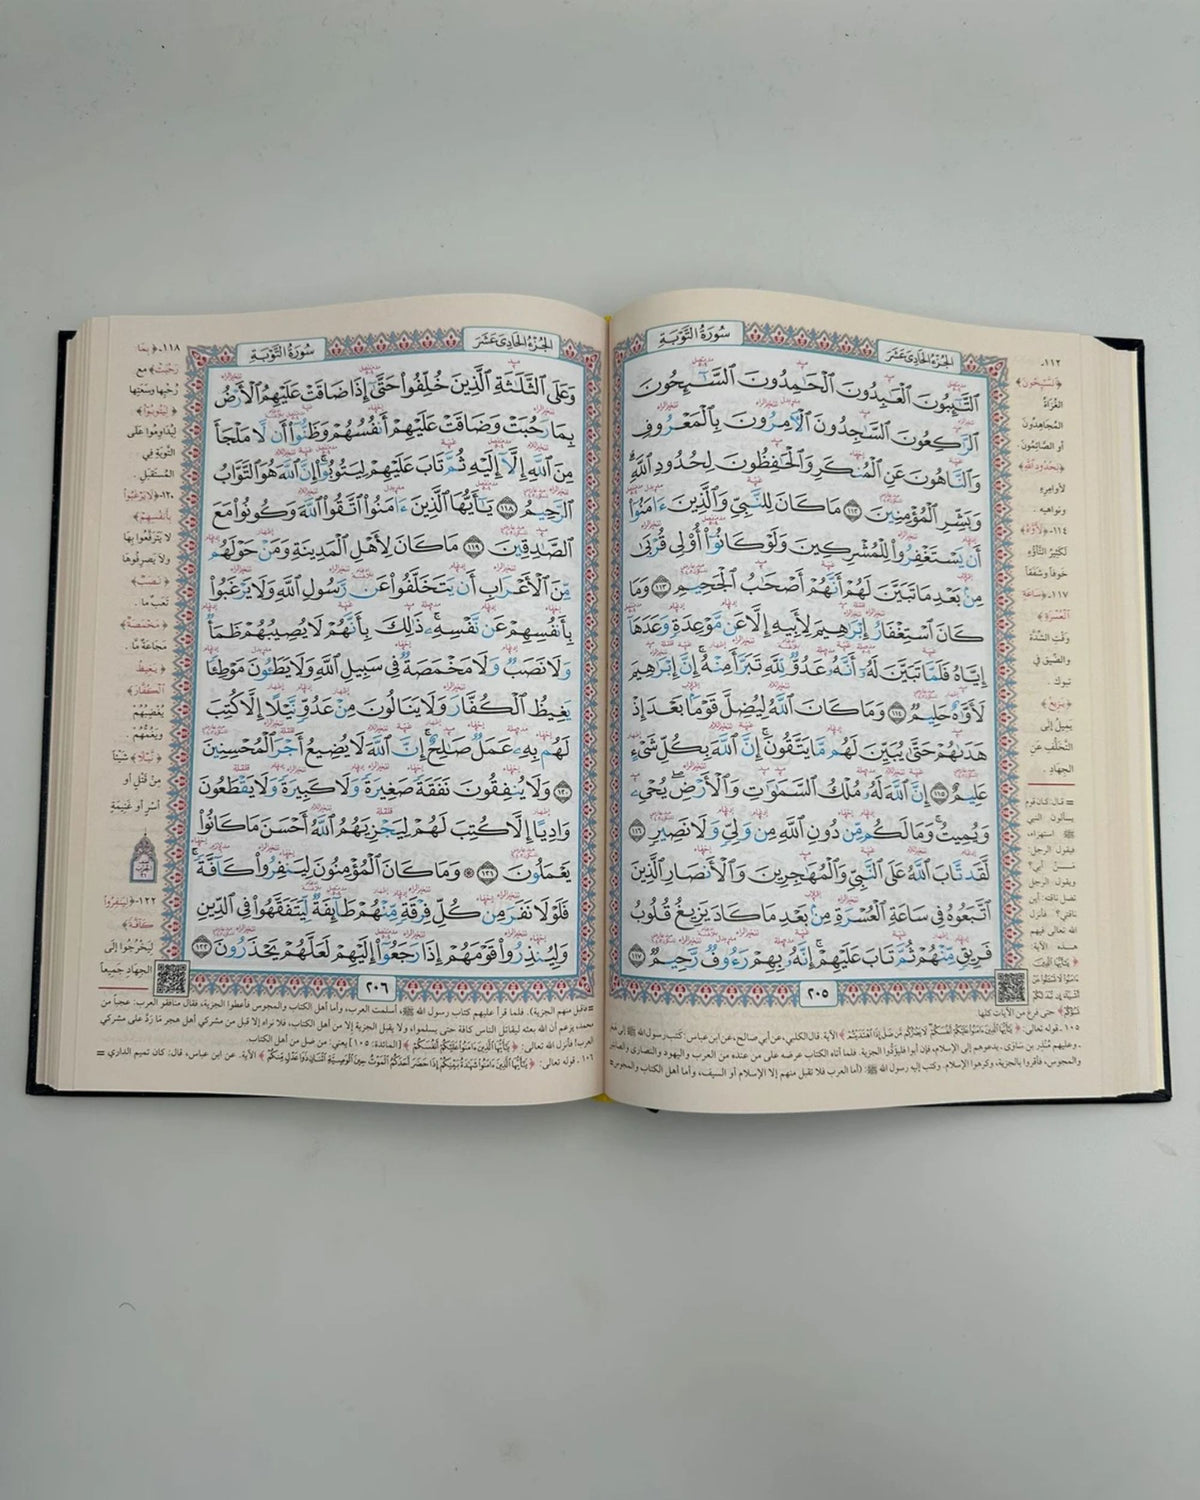 سُورَةُ التَّوْبَةِ
الجُزْءُ الحَادِي عَشَرَ
ٱلتَّـٰٓئِبُونَ ٱلْعَـٰبِدُونَ ٱلْحَـٰمِدُونَ ٱلسَّـٰٓئِحُونَ
ٱلرَّٰكِعُونَ ٱلسَّـٰجِدُونَ ٱلْـَٔامِرُونَ بِٱلْمَعْرُوفِ
وَٱلنَّاهُونَ عَنِ ٱلْمُنكَرِ وَٱلْحَـٰفِظُونَ لِحُدُودِ ٱللَّهِ
وَبَشِّرِ ٱلْمُؤْمِنِينَ ١١٢ مَا كَانَ لِلنَّبِيِّ وَٱلَّذِينَ ءَامَنُوٓا۟
أَن يَسْتَغْفِرُوا۟ لِلْمُشْرِكِينَ وَلَوْ كَانُوٓا۟ أُو۟لِى قُرْبَىٰ
مِنۢ بَعْدِ مَا تَبَيَّنَ لَهُمْ أَنَّهُمْ أَصْحَـٰبُ ٱلْجَحِيمِ ١١٣ وَمَا
كَانَ ٱسْتِغْفَارُ إِبْرَٰهِيمَ لِأَبِيهِ إِلَّا عَن مَّوْعِدَةٍ وَعَدَهَآ
إِيَّاهُ فَلَمَّا تَبَيَّنَ لَهُۥٓ أَنَّهُۥ عَدُوٌّ لِّلَّهِ تَبَرَّأَ مِنْهُ ۚ إِنَّ إِبْرَٰهِيمَ
لَأَوَّٰهٌ حَلِيمٌ ١١٤ وَمَا كَانَ ٱللَّهُ لِيُضِلَّ قَوْمًۢا بَعْدَ إِذْ
هَدَىٰهُمْ حَتَّىٰ يُبَيِّنَ لَهُم مَّا يَتَّقُونَ ۚ إِنَّ ٱللَّهَ بِكُلِّ شَىْءٍ
عَلِيمٌ ١١٥ إِنَّ ٱللَّهَ لَهُۥ مُلْكُ ٱلسَّمَـٰوَٰتِ وَٱلْأَرْضِ ۖ يُحْىِۦ
وَيُمِيتُ ۚ وَمَا لَكُم مِّن دُونِ ٱللَّهِ مِن وَلِىٍّ وَلَا نَصِيرٍ ١١٦
لَّقَد تَّابَ ٱللَّهُ عَلَى ٱلنَّبِىِّ وَٱلْمُهَـٰجِرِينَ وَٱلْأَنصَارِ ٱلَّذِينَ
ٱتَّبَعُوهُ فِى سَاعَةِ ٱلْعُسْرَةِ مِنۢ بَعْدِ مَا كَادَ يَزِيغُ قُلُوبُ
فَرِيقٍ مِّنْهُمْ ثُمَّ تَابَ عَلَيْهِمْ ۚ إِنَّهُۥ بِهِمْ رَءُوفٌ رَّحِيمٌ ١١٧
٢٠٥
١١٢-
﴿السَّـٰٓئِحُونَ﴾
الغُزَاةُ
المُجَاهِدُونَ
أو الصَّائِمُونَ.
﴿لِحُدُودِ اللَّهِ﴾
لأوامِرِهِ
ونواهيه .
١١٤-﴿لَأَوَّٰهٌ﴾
لَكَثِيرُ التَّأَوُّهِ
خوفاً وشَفَقاً
١١٧-﴿سَاعَةِ
ٱلْعُسْرَةِ﴾
وَقْتِ الشِّدَّةِ
والضِّيقِ في
تبوك .
﴿يَزِيغُ﴾
يَمِيلُ إلى
التَّخَلُّفِ عَنِ
الجِهَادِ .
= قال: كان قوم
يسألون النبي
ﷺ استهزاء،
فيقول الرجل:
مَنْ أبي؟
ويقول الرجل
تضل ناقته: أين
ناقتي؟ فأنزل
الله تعالى فيهم
هذه الآية:
حتى فرغ من الآيات كلها.
الجُزْءُ الحَادِي عَشَرَ
سُورَةُ التَّوْبَةِ
وَعَلَى ٱلثَّلَـٰثَةِ ٱلَّذِينَ خُلِّفُوا۟ حَتَّىٰٓ إِذَا ضَاقَتْ عَلَيْهِمُ ٱلْأَرْضُ
بِمَا رَحُبَتْ وَضَاقَتْ عَلَيْهِمْ أَنفُسُهُمْ وَظَنُّوٓا۟ أَن لَّا مَلْجَأَ
مِنَ ٱللَّهِ إِلَّآ إِلَيْهِ ثُمَّ تَابَ عَلَيْهِمْ لِيَتُوبُوٓا۟ ۚ إِنَّ ٱللَّهَ هُوَ ٱلتَّوَّابُ
ٱلرَّحِيمُ ١١٨ يَـٰٓأَيُّهَا ٱلَّذِينَ ءَامَنُوا۟ ٱتَّقُوا۟ ٱللَّهَ وَكُونُوا۟ مَعَ
ٱلصَّـٰدِقِينَ ١١٩ مَا كَانَ لِأَهْلِ ٱلْمَدِينَةِ وَمَنْ حَوْلَهُم
مِّنَ ٱلْأَعْرَابِ أَن يَتَخَلَّفُوا۟ عَن رَّسُولِ ٱللَّهِ وَلَا يَرْغَبُوا۟
بِأَنفُسِهِمْ عَن نَّفْسِهِۦ ۚ ذَٰلِكَ بِأَنَّهُمْ لَا يُصِيبُهُمْ ظَمَأٌ
وَلَا نَصَبٌ وَلَا مَخْمَصَةٌ فِى سَبِيلِ ٱللَّهِ وَلَا يَطَـُٔونَ مَوْطِئًا
يَغِيظُ ٱلْكُفَّارَ وَلَا يَنَالُونَ مِنْ عَدُوٍّ نَّيْلًا إِلَّا كُتِبَ
لَهُم بِهِۦ عَمَلٌ صَـٰلِحٌ ۚ إِنَّ ٱللَّهَ لَا يُضِيعُ أَجْرَ ٱلْمُحْسِنِينَ
١٢٠ وَلَا يُنفِقُونَ نَفَقَةً صَغِيرَةً وَلَا كَبِيرَةً وَلَا يَقْطَعُونَ
وَادِيًا إِلَّا كُتِبَ لَهُمْ لِيَجْزِيَهُمُ ٱللَّهُ أَحْسَنَ مَا كَانُوا۟
يَعْمَلُونَ ١٢١ ۞ وَمَا كَانَ ٱلْمُؤْمِنُونَ لِيَنفِرُوا۟ كَآفَّةً ۚ
فَلَوْلَا نَفَرَ مِن كُلِّ فِرْقَةٍ مِّنْهُمْ طَآئِفَةٌ لِّيَتَفَقَّهُوا۟ فِى ٱلدِّينِ
وَلِيُنذِرُوا۟ قَوْمَهُمْ إِذَا رَجَعُوٓا۟ إِلَيْهِمْ لَعَلَّهُمْ يَحْذَرُونَ ١٢٢
٢٠٦
١١٨-﴿بِمَا
رَحُبَتْ﴾ مع
رُحْبِها وسَعَتِها
﴿لِيَتُوبُوٓا۟﴾
لِيُدَاوِمُوا عَلَى
التَّوْبَةِ فِي
المُسْتَقْبَلِ .
١٢٠-﴿لَا يَرْغَبُوا۟
بِأَنفُسِهِمْ﴾
لا يَتَرَفَّعُوا بِها
ولا يَصْرِفُوهَا
﴿نَصَبٌ﴾
تَعَبٌ ما .
﴿مَخْمَصَةٌ﴾
مَجَاعَةٌ مَّا .
﴿يَغِيظُ
ٱلْكُفَّارَ﴾
يُغْضِبُهُمْ
ويَغُمُّهُم .
﴿نَّيْلًا﴾ شَيْئاً
مِنْ قَتْلٍ أو
أَسْرٍ أو غَنِيمَةٍ
١٢٢-﴿لِيَنفِرُوا۟
كَآفَّةً﴾
لِيَخْرُجُوا إِلَى
الجِهَادِ جَمِيعاً